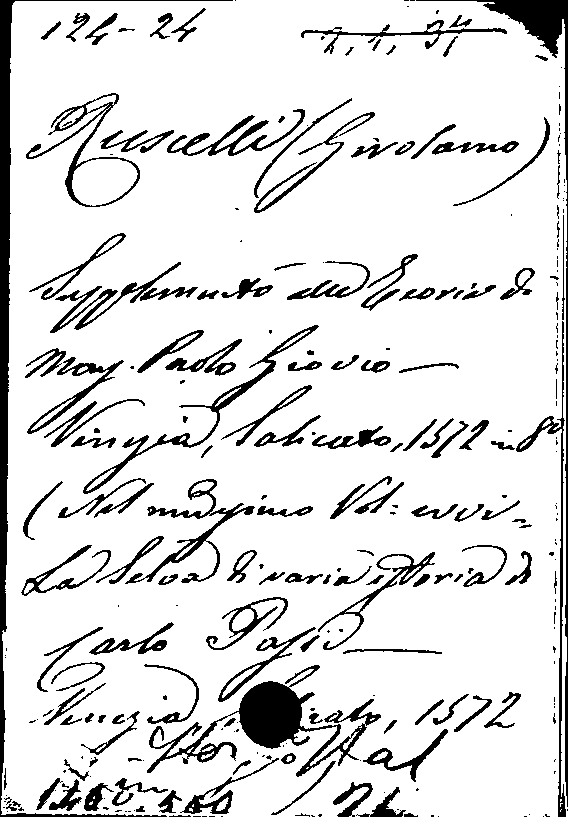 124-24 2, 1, 37
Ruscelli (Girolamo)
Supplemento alle Istorie di
Mog. Paolo Giovio —
Venezia, Salicato, 1572 in 8º
(Nel medesimo Vol: evvi=
La Selva di varia istoria di
Carlo Passi —
Venezia, 1572